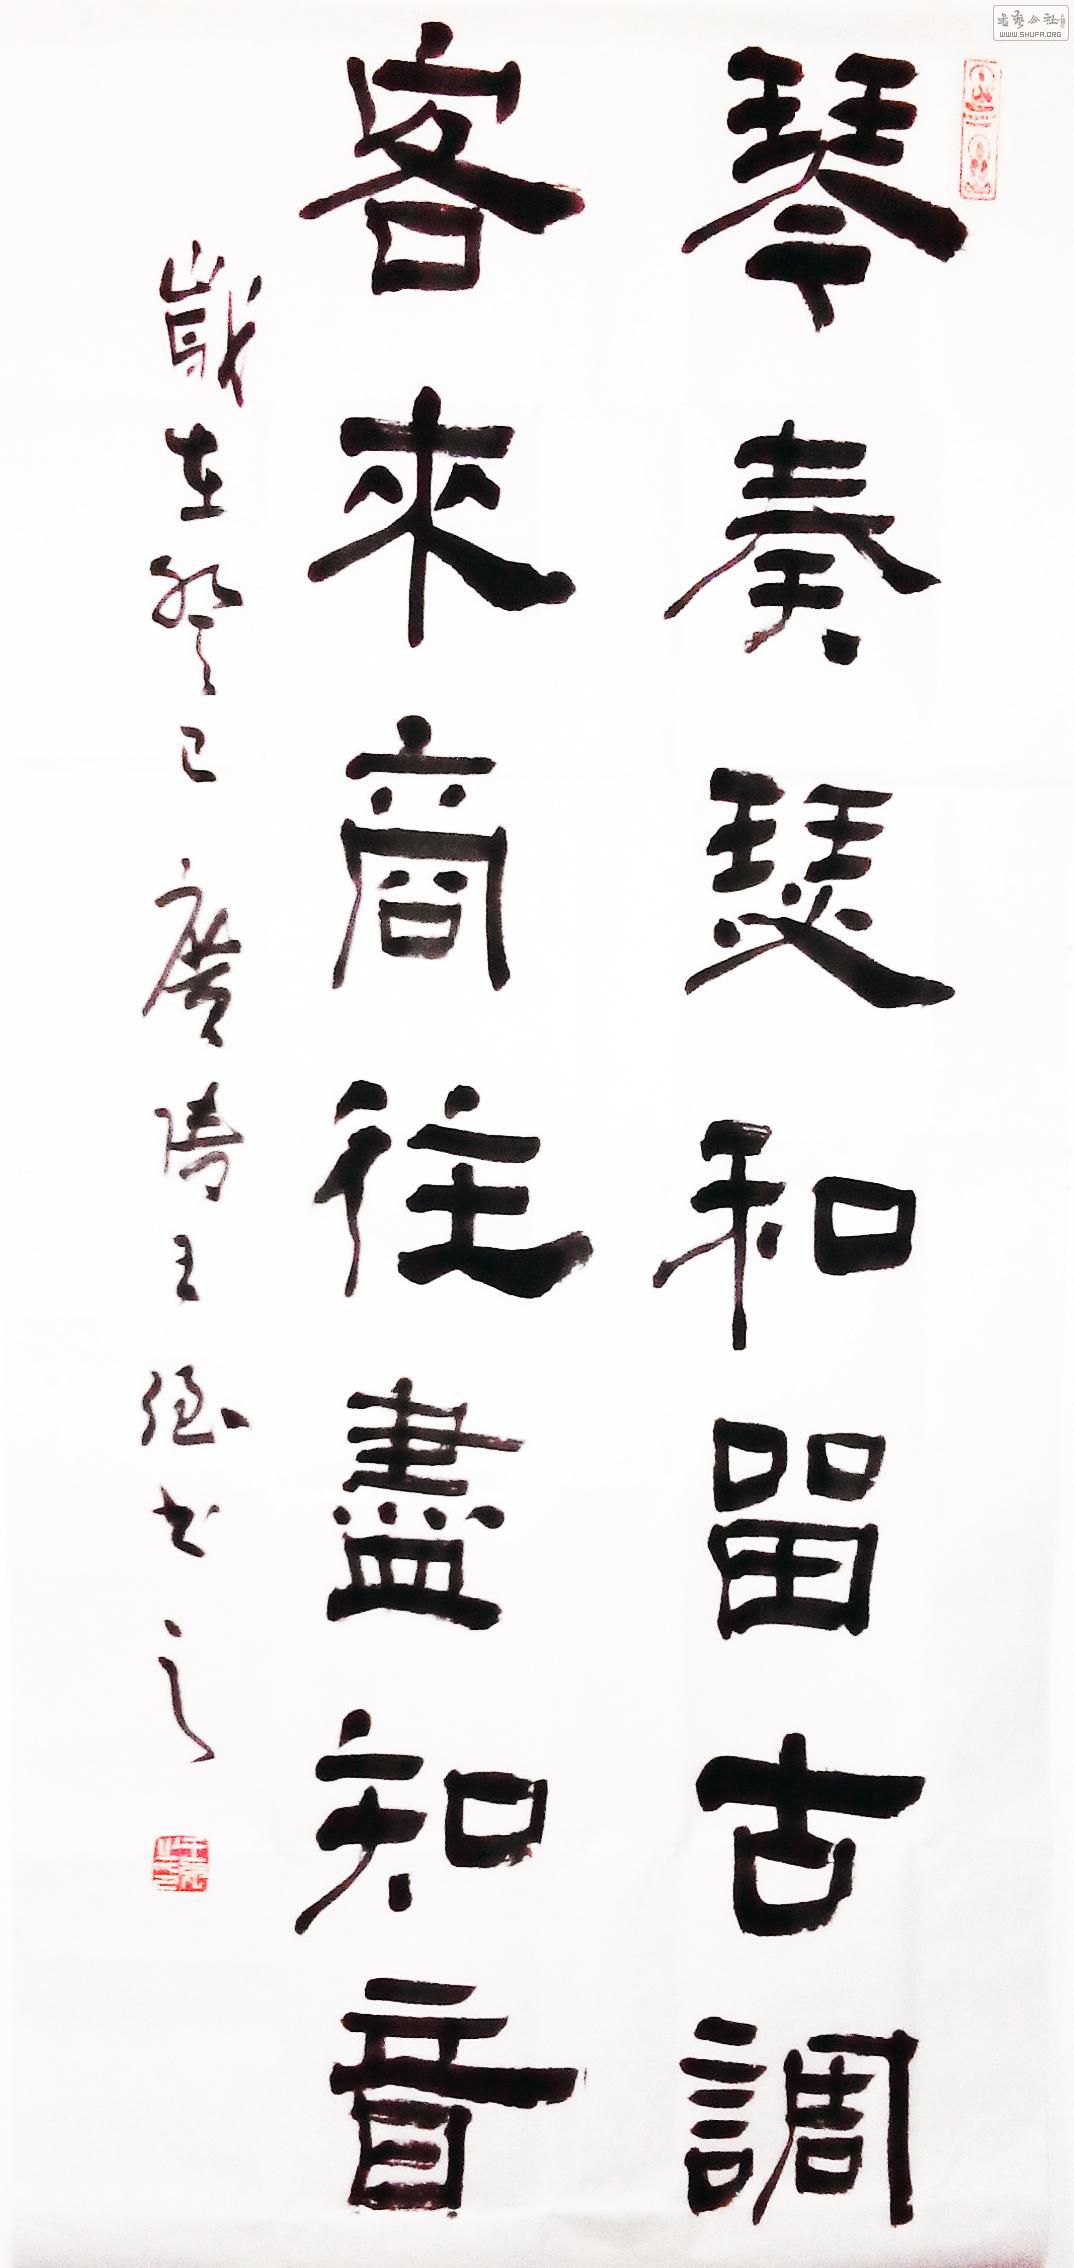 琴奏瑟和留古調
客來商往盡知音
歲在癸巳 廣陵王强書之
書藝公社
WWW.SHUFA.ORG